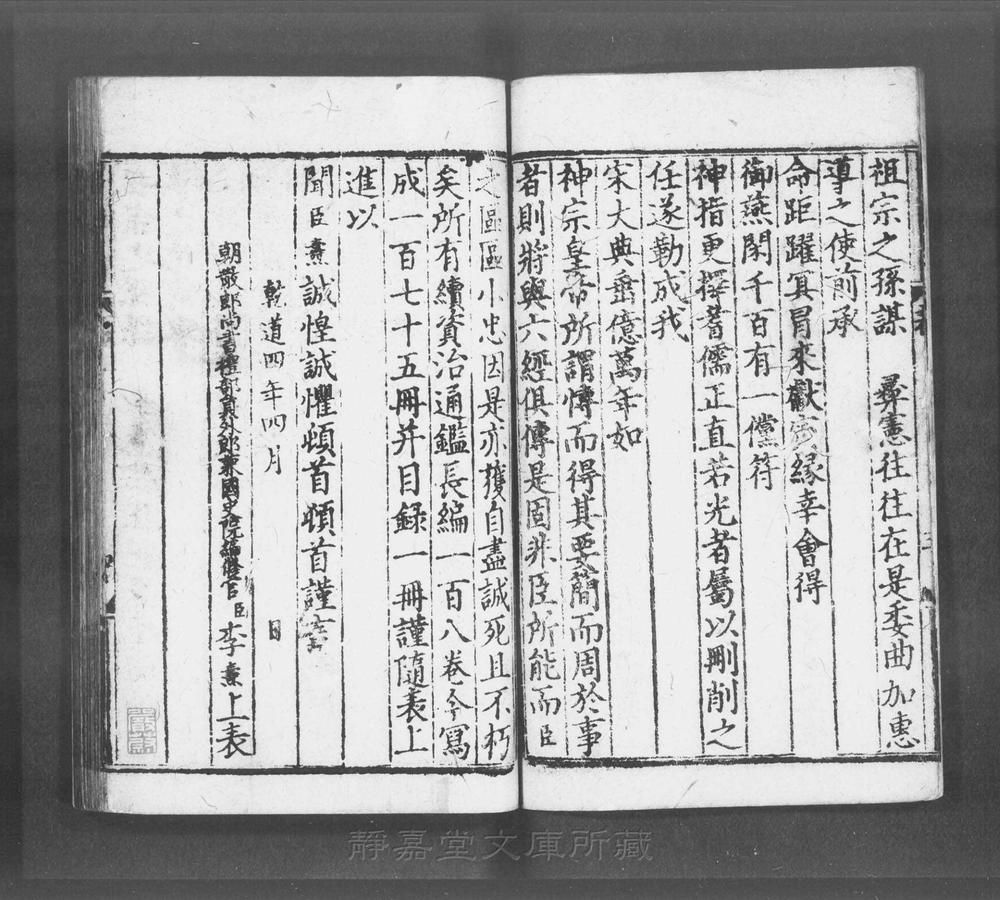 祖宗之孫謀　彛憲往往在是委曲加惠
導之使前承
命距躍冥冒來獻夤緣幸會得
御燕閑千百有一儻符
神指更擇耆儒正直若光者屬以刪削之
任遂勒成我
宋大典垂億萬年如
神宗皇帝所謂博而得其要簡而周於事
者則將與六經俱傳是固非臣所能而臣
之區區小忠因是亦獲自盡誠死且不朽
矣所有續資治通鑑長編一百八卷今寫
成一百七十五冊并目録一冊謹隨表上
進以
聞臣燾誠惶誠懼頓首頓首謹言
乾道四年四月　日
朝散郎尚書禮部員外郎兼國史院編修官臣李燾上表
靜嘉堂文庫所藏